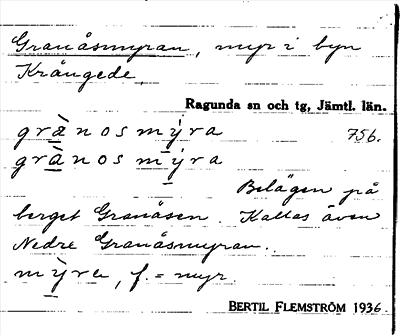 Granåsmyran, myr i byn
Krångede,
Ragunda sn och tg, Jämtl. län.
grànosmỳra 756.
grànosmỳra
Belägen på
berget Granåsen. Kallas även
Nedre Granåsmyran.
mỳra, f. = myr.
BERTIL FLEMSTRÖM 1936.